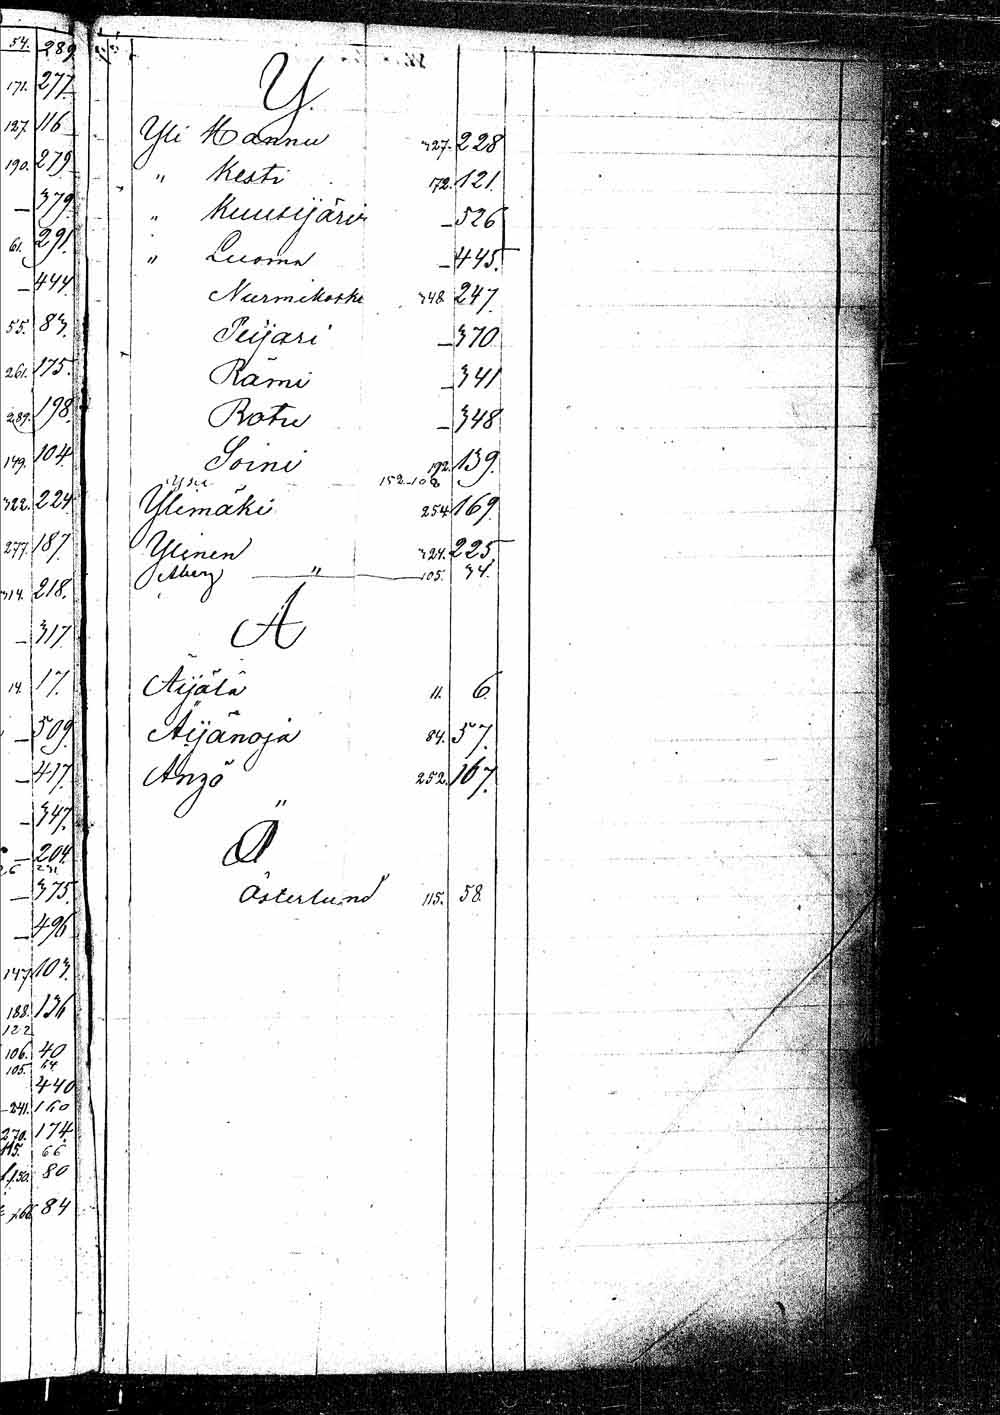 54. 289
171. 277.
127. 116
190. 279
— 379.
61. 291.
— 444.
55. 83.
261. 175.
289. 198.
149. 104.
322. 224.
277. 187.
314. 218.
— 317.
14. 17.
— 509.
— 417.
— 347.
— 204.
— 375.
— 496
147. 103.
188. 136
122
106. 40
105. 64
440
241. 160
270. 174.
115. 66
150. 80
266. 84
Y.
Yli Hannu 327. 228
" Kesti 172. 121.
" Kuusijärvi — 526
" Luoma — 445.
Nurmikoski 348 247.
Peijari — 370
Rämi — 341
Rotu — 348
Soini 192. 139.
152 108
Ylimäki 254 169.
Ylinen 324. 225
Åberg — " — 105. 34.
Ä
Äijälä 11. 6.
Äijänoja 84. 57.
Änzö 252. 167.
Ö
Österlund 115. 58.